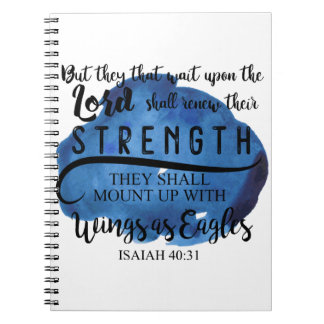 But they that wait upon the
Lord shall renew their
STRENGTH
THEY SHALL
MOUNT UP WITH
Wings as Eagles
ISAIAH 40:31